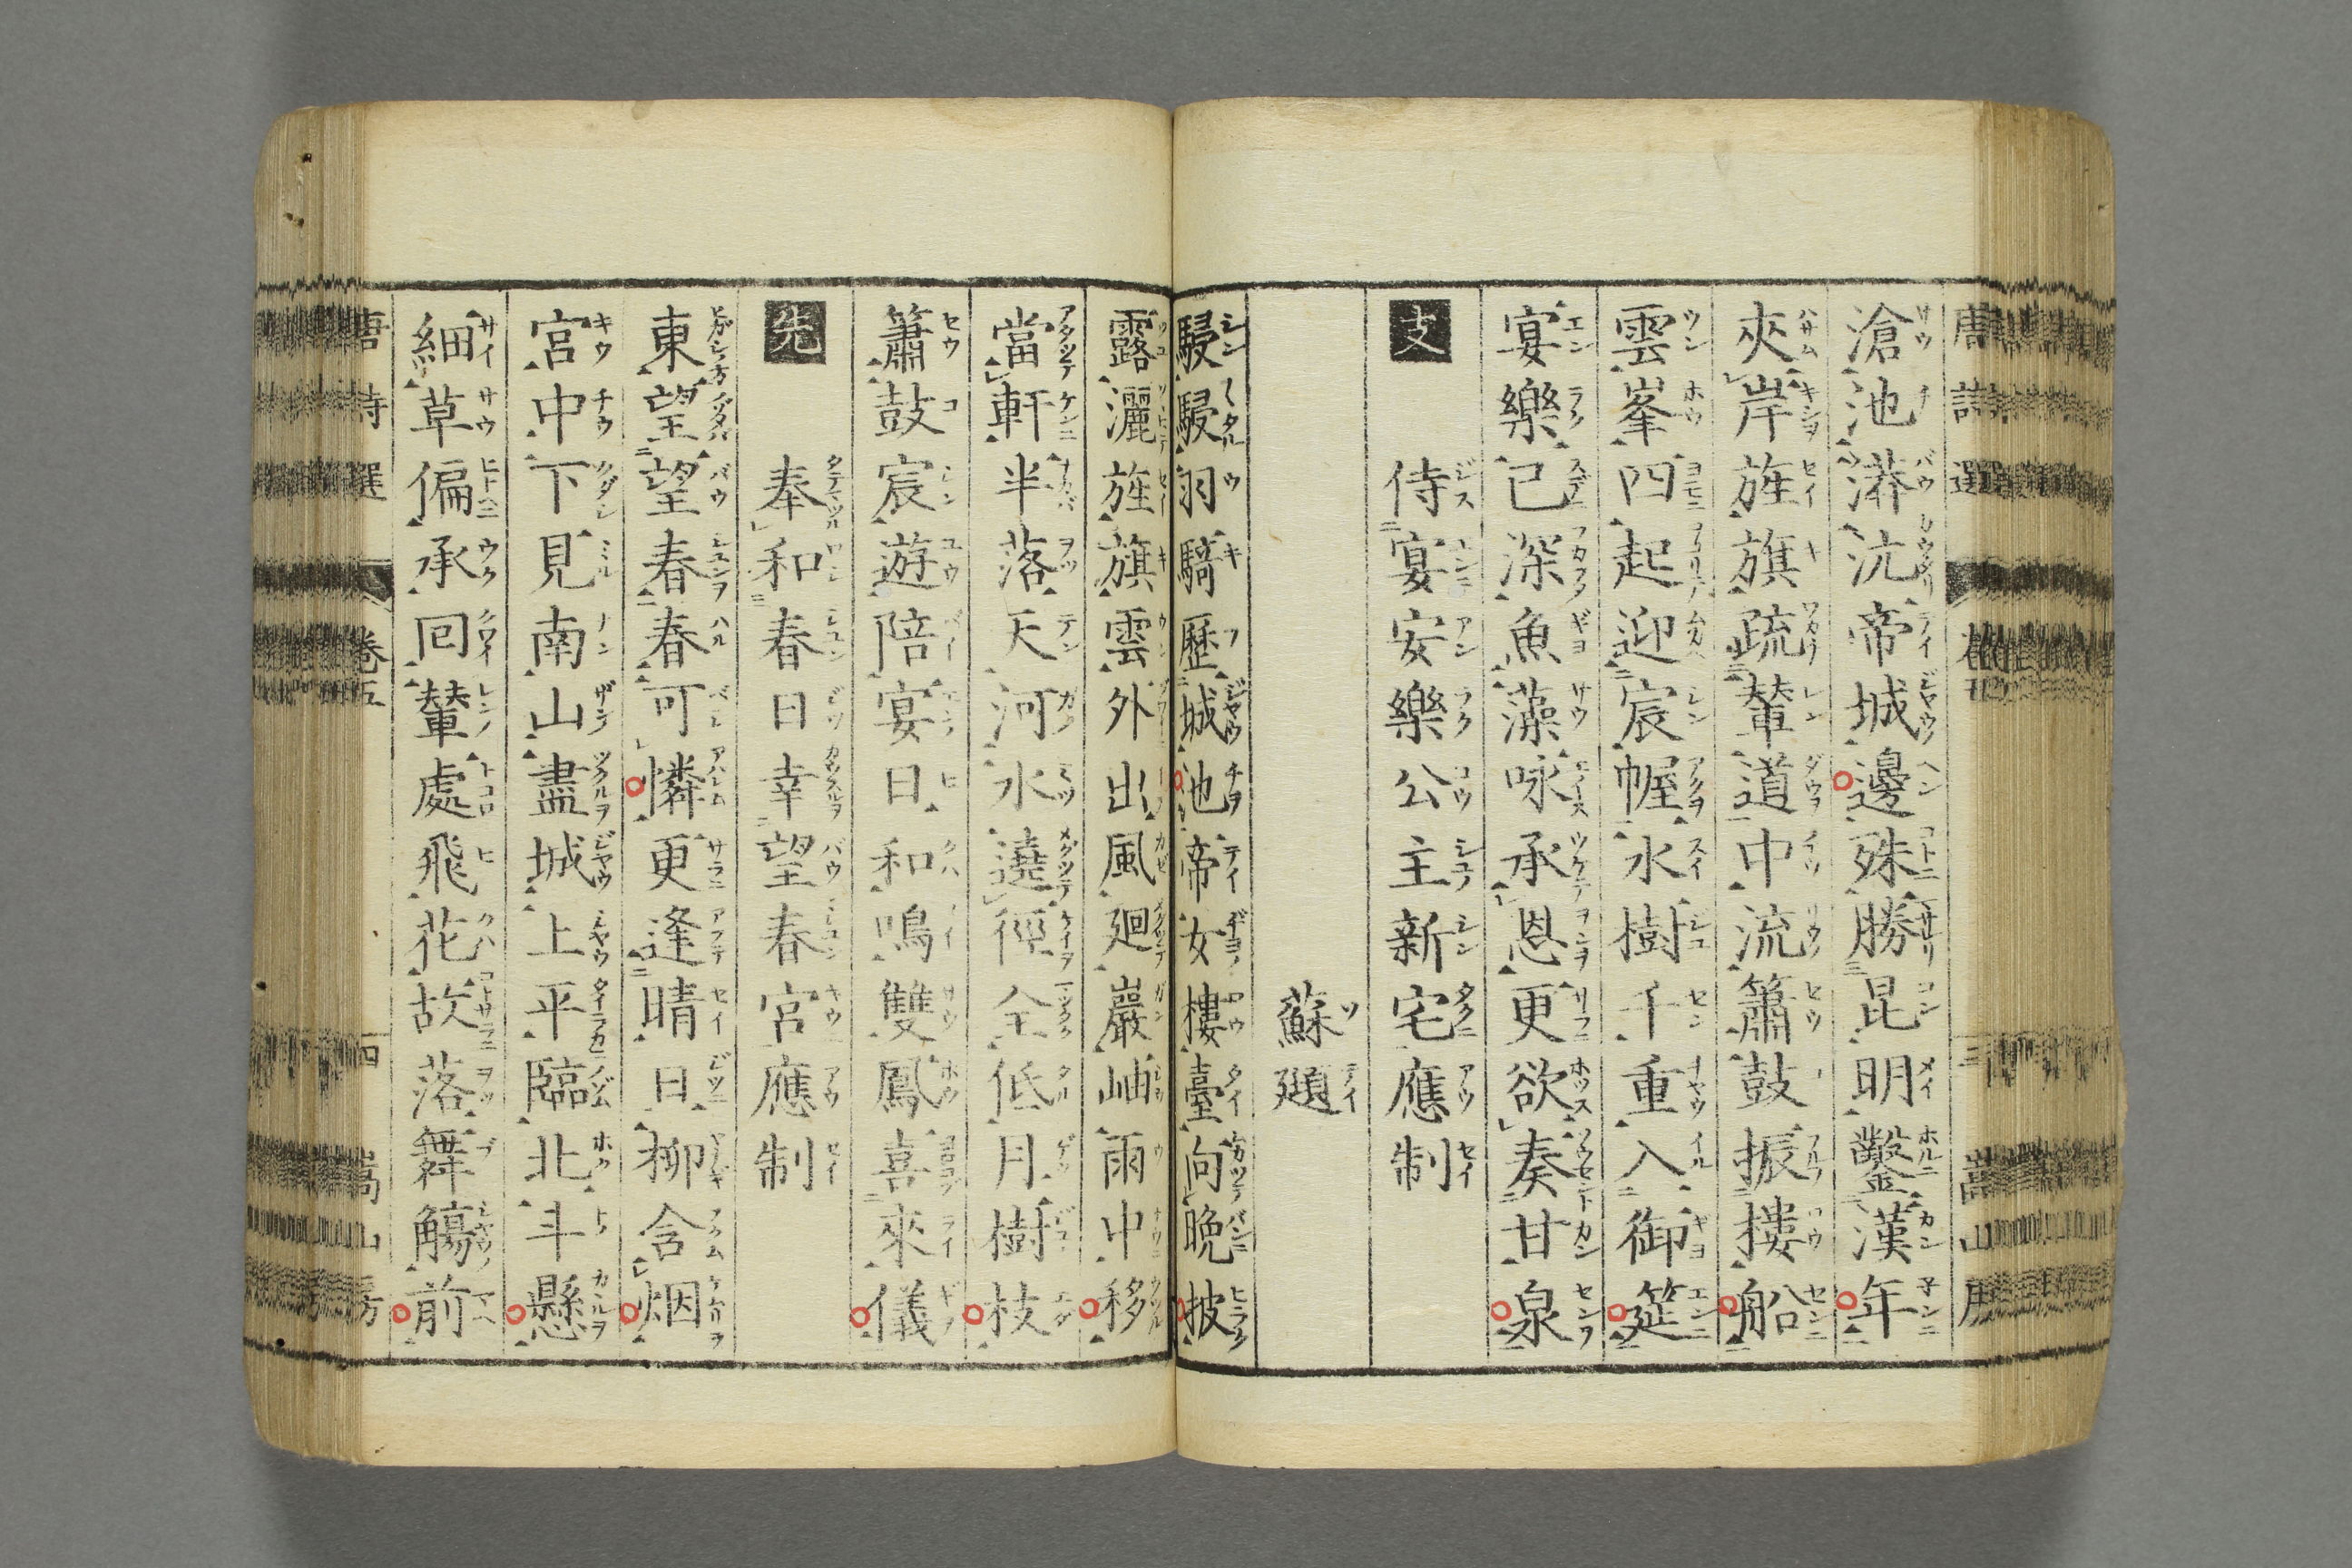 唐詩選 卷五 三 嵩山房
滄池漭沆帝城邊殊勝昆明鑿漢年
夾岸旌旗疏輦道中流簫鼓振樓船
雲峯四起迎宸幄水樹千重入御筵
宴樂已深魚藻咏承恩更欲奏甘泉
支 侍宴安樂公主新宅應制
蘇頲
駸駸羽騎歷城池帝女樓臺向晚披
露灑旌旗雲外出風廻巖岫雨中移
當軒半落天河水遶徑全低月樹枝
簫鼓宸遊陪宴日和鳴雙鳳喜來儀
先 奉和春日幸望春宮應制
東望望春春可憐更逢晴日柳含烟
宮中下見南山盡城上平臨北斗懸
細草偏承回輦處飛花故落舞觴前
唐詩選 卷五 四 嵩山房